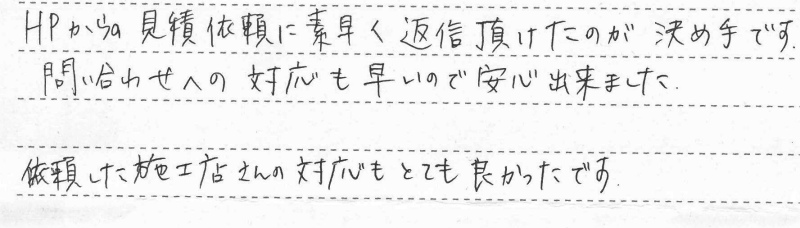 HPからの見積依頼に素早く返信頂けたのが決め手です.
問い合わせへの対応も早いので安心出来ました.
依頼した施工店さんの対応もとても良かったです.